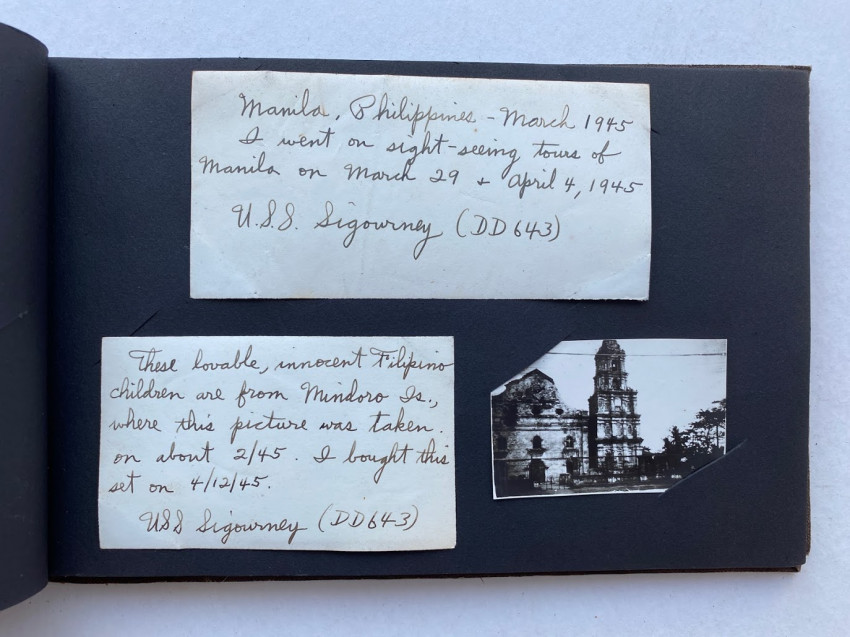 Manila, Philippines - March 1945
I went on sight-seeing tours of
Manila on March 29 + April 4, 1945
U.S.S. Sigourney (DD643)
These lovable, innocent Filipino
children are from Mindoro Is.,
where this picture was taken.
on about 2/45. I bought this
set on 4/12/45.
USS Sigourney (DD643)